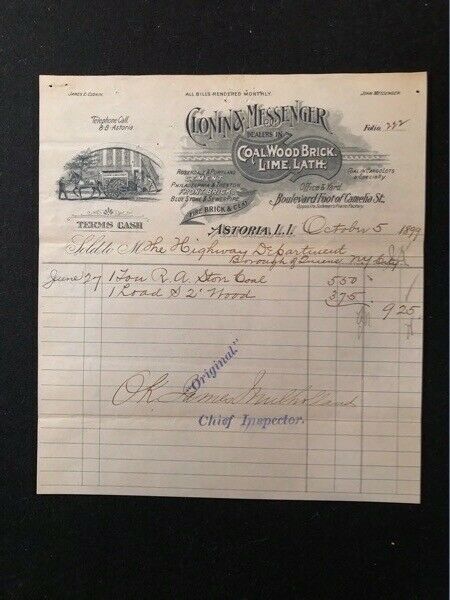 JAMES E. CLONIN.
ALL BILLS RENDERED MONTHLY.
JOHN MESSENGER.
Telephone Call
88-Astoria
CLONIN & MESSENGER
DEALERS IN
Folio 232
COAL, WOOD, BRICK,
LIME, LATH,
ROSENDALE & PORTLAND
CEMENT
PHILADELPHIA & TRENTON
FRONT BRICK
BLUE STONE & SEWER PIPE
FIRE BRICK & CLAY
COAL IN CARGO LOTS
a Specialty
Office & Yard
Boulevard Foot of Camelia St.
TERMS CASH
ASTORIA, L.I. October 5 1899
Sold to M The Highway Department
Borough of Queens NY City
June 27 1 Ton R. A. Stov Coal 5.50
1 Load S 2' Wood 3.75
9.25
"Original."
OK James Mulholland
Chief Inspector.